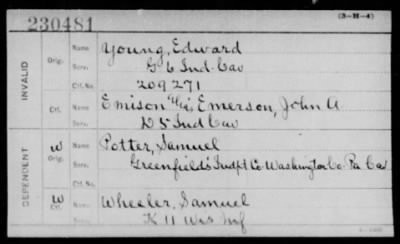 230481
(3-H-4)
INVALID
Orig.
Name Young, Edward
Serv. G 6 Ind Cav
Ctf. No. 209271
Ctf.
Name Emison alias, Emerson, John A.
Serv. D 5 Ind Cav
DEPENDENT
W
Orig.
Name Potter, Samuel
Serv. Greenfield's Indpt Co. Washington Co. Pa Cav
Ctf. No.
W
Ctf.
Name Wheeler, Samuel
Serv. K 11 Wis Inf